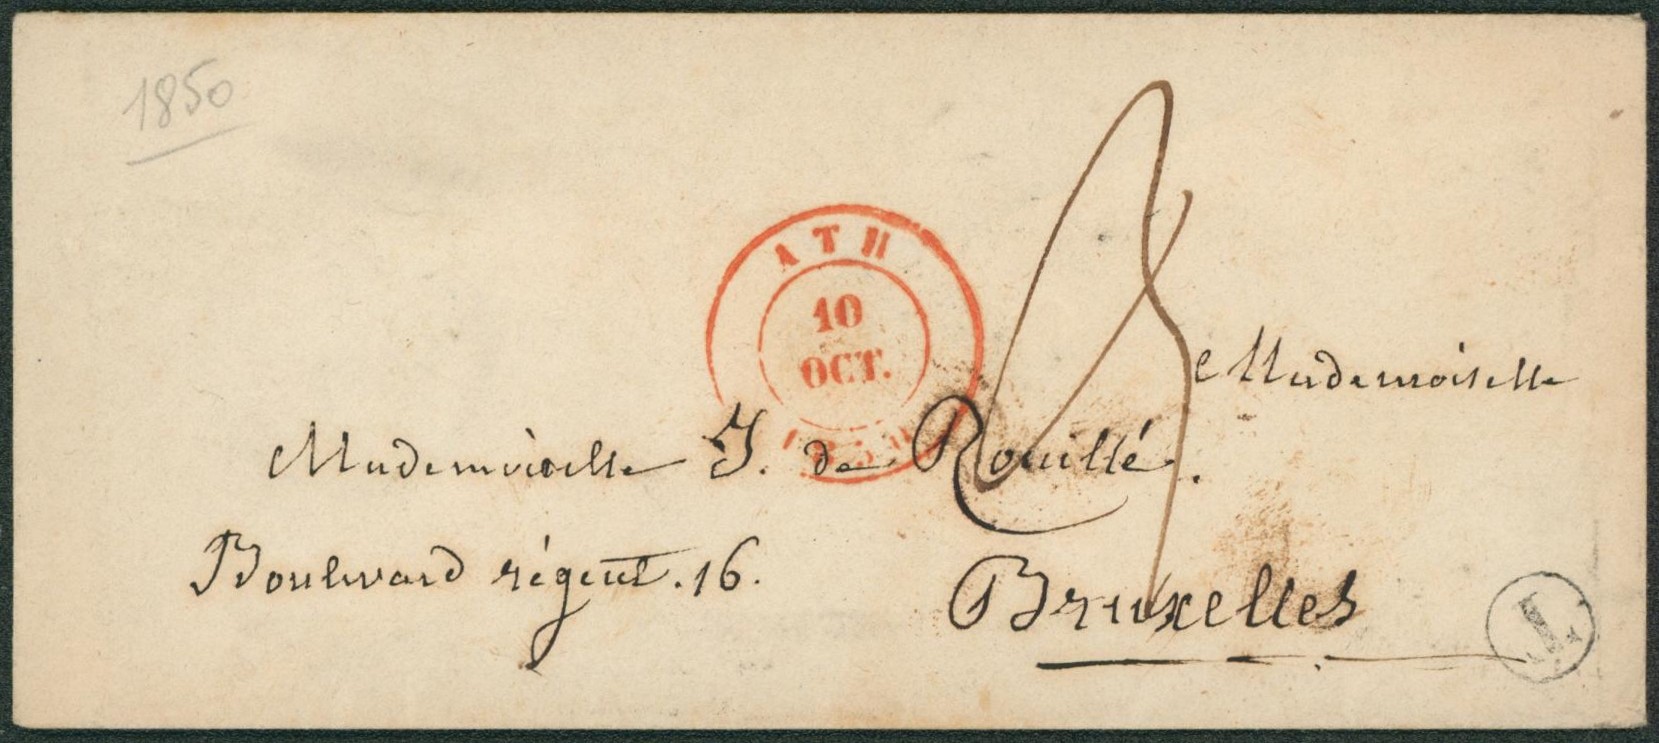 1850
ATH
10
OCT.
1850
Mademoiselle
Mademoiselle J. de Rouillé.
Boulevard régent. 16.
Bruxelles